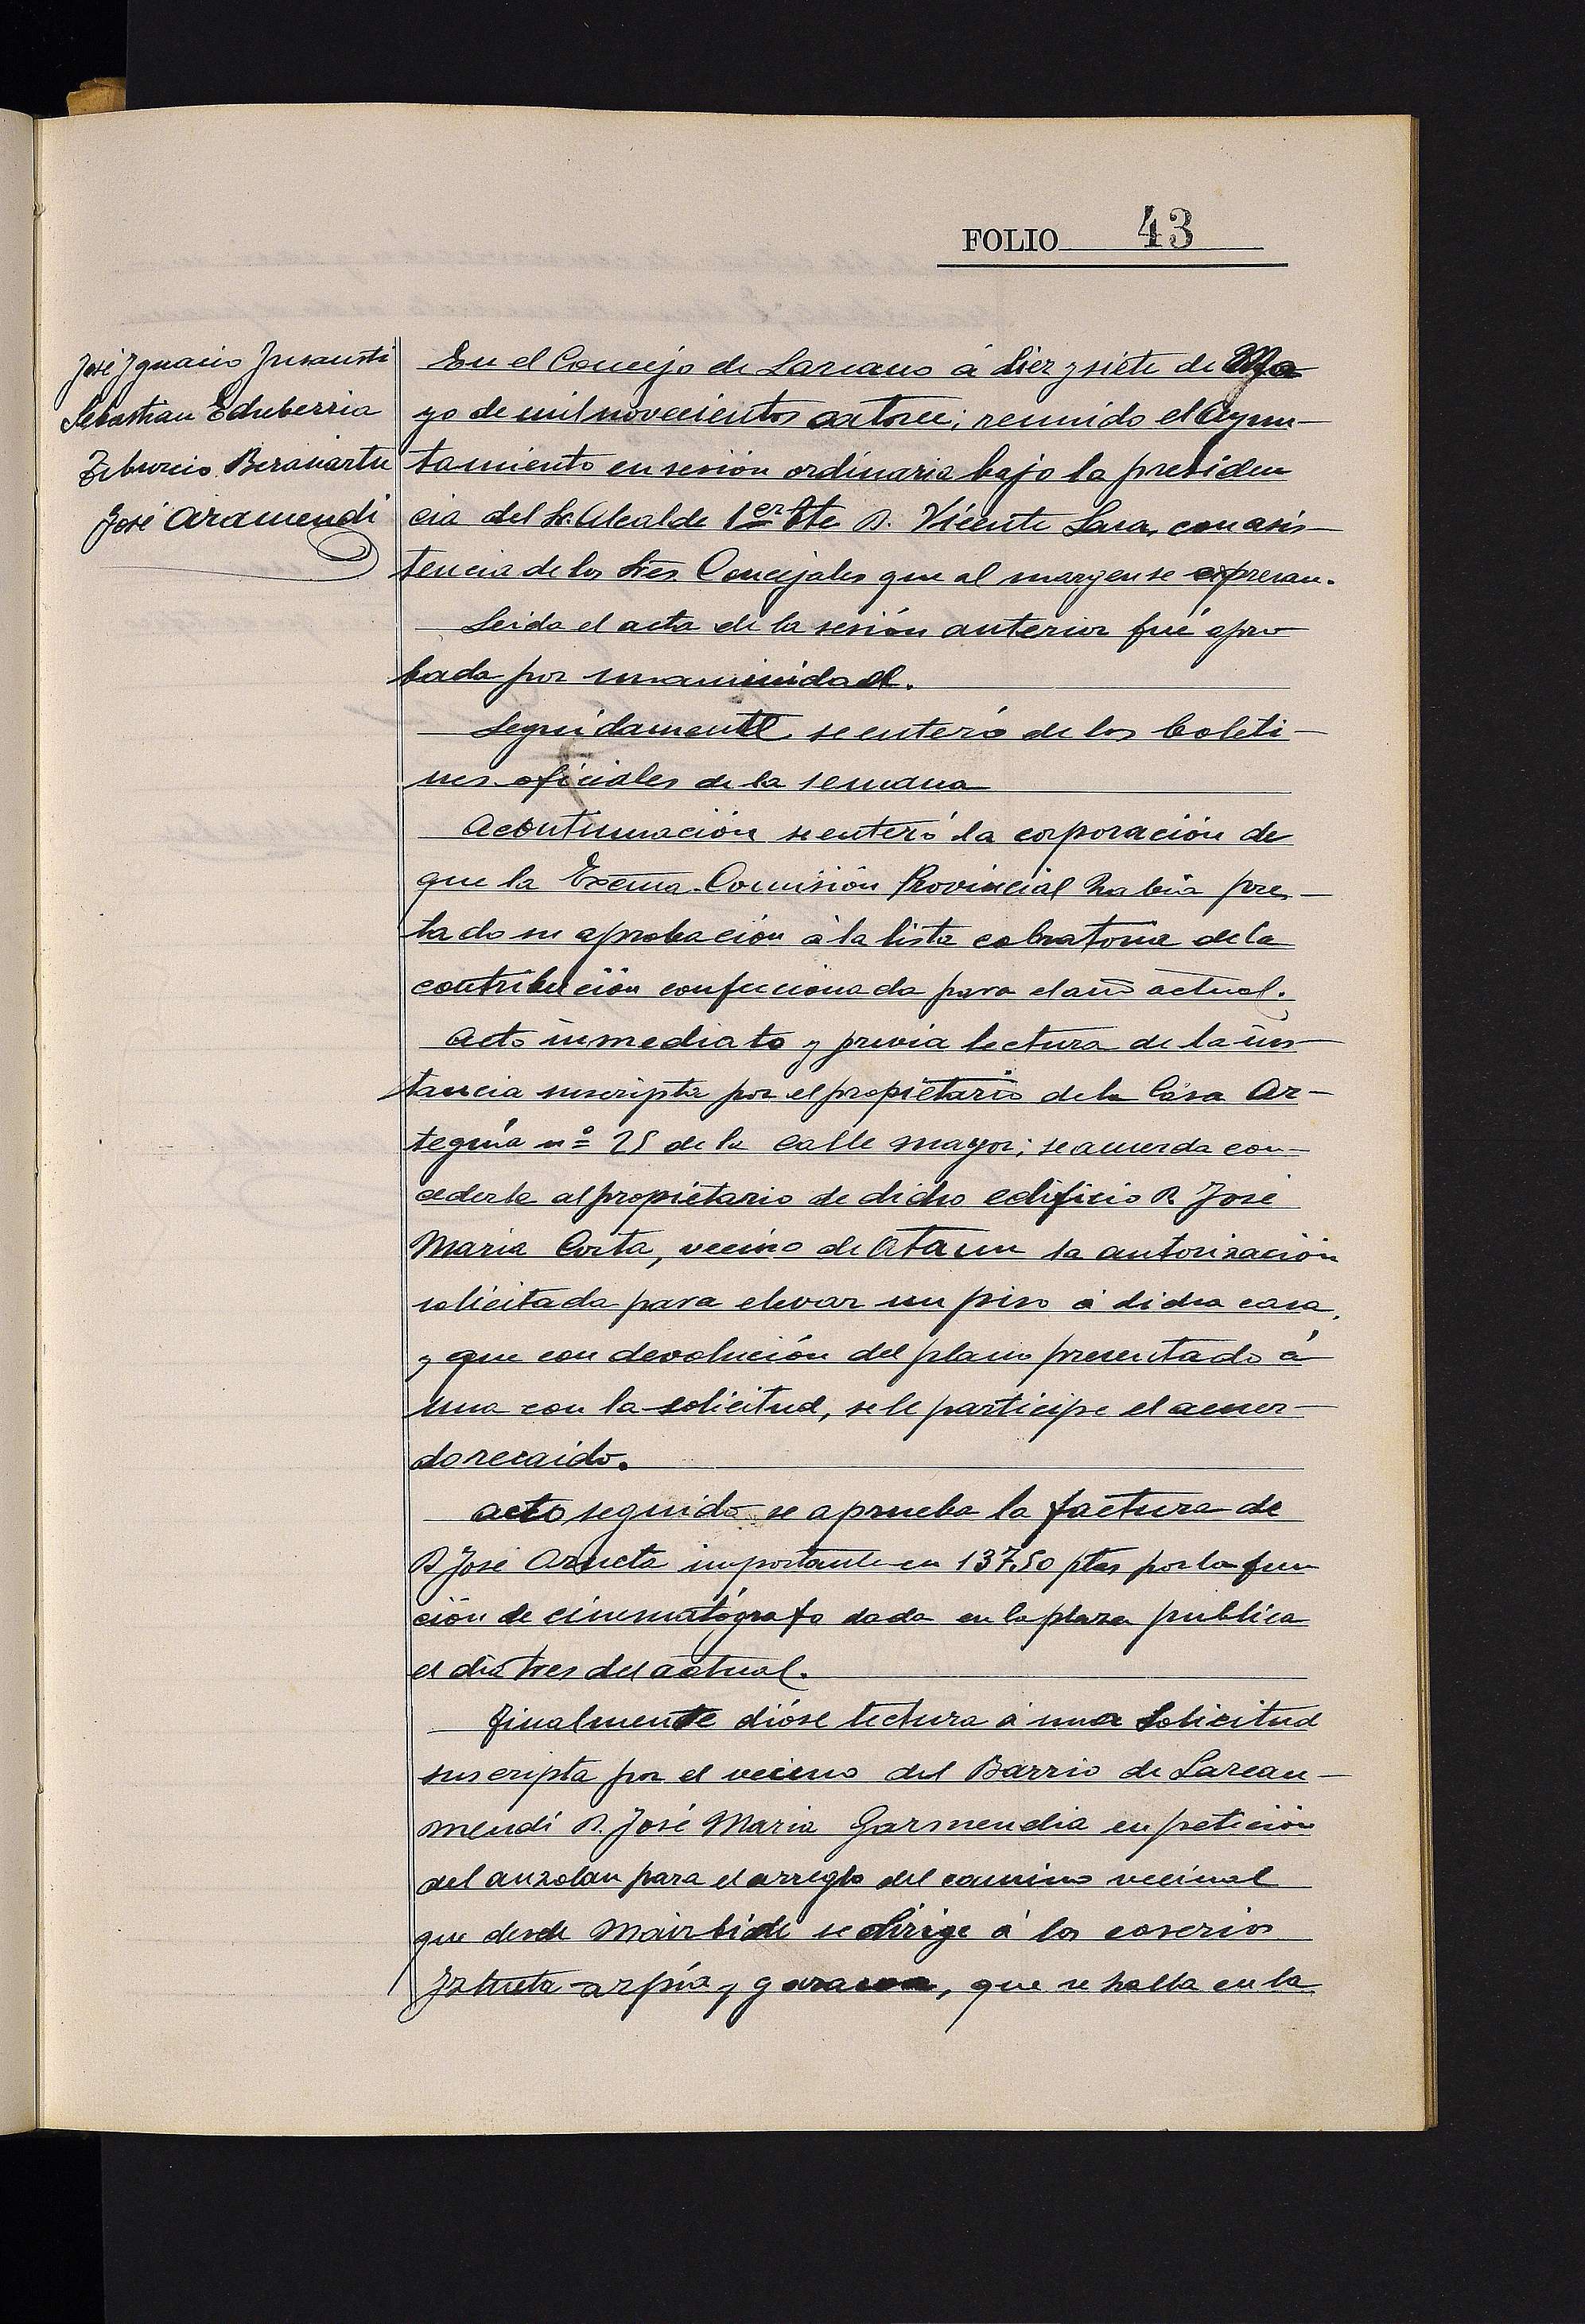 FOLIO 43
José Ygnacio Insausti
Sebastian Echeberria
Tiburcio Beraiartu
José Aramendi
En el Concejo de Lazcano á diez y siete de Ma
yo de mil novecientos catorce; reunido el Ayun-
tamiento en sesión ordinaria bajo la presiden
cia del Sr. Alcalde 1er Tte D. Vicente Lasa, con asis-
tencia de los Sres Concejales que al margen se expresan.
Leida el acta de la sesión anterior fué apro
bada por unanimidad.
Seguidamente se enteró de los boleti-
nes oficiales de la semana
Acontinuación se enteró la corporación de
que la Excma. Comisión Provincial habia pres-
tado su aprobación á la lista cobratoria de la
contribución confeccionada para el año actual.
Acto inmediato y previa lectura de la ins-
tancia suscripta por el propietario de la Casa Ar-
teguia nº 25 de la Calle mayor; se acuerda con-
cederle al propietario de dicho edificio D. José
Maria Corta, vecino de Ataun la autorización
solicitada para elevar un piso á dicha casa,
y que con devolución del plano presentado á
una con la solicitud, se le participe el acuer-
do recaido.
Acto seguido se aprueba la factura de
D José Arrueta importante en 137,50 ptas por la fun
ción de cinematógrafo dada en la plaza publica
el dia tres del actual.
Finalmente dióse lectura á una solicitud
suscripta por el vecino del Barrio de Lazcau-
mendi D. José Maria Garmendia en petición
del auzolan para el arreglo del camino vecinal
que desde Mairbide se dirige á los caserios
Iztueta azpia y garaicoa, que se halla en la